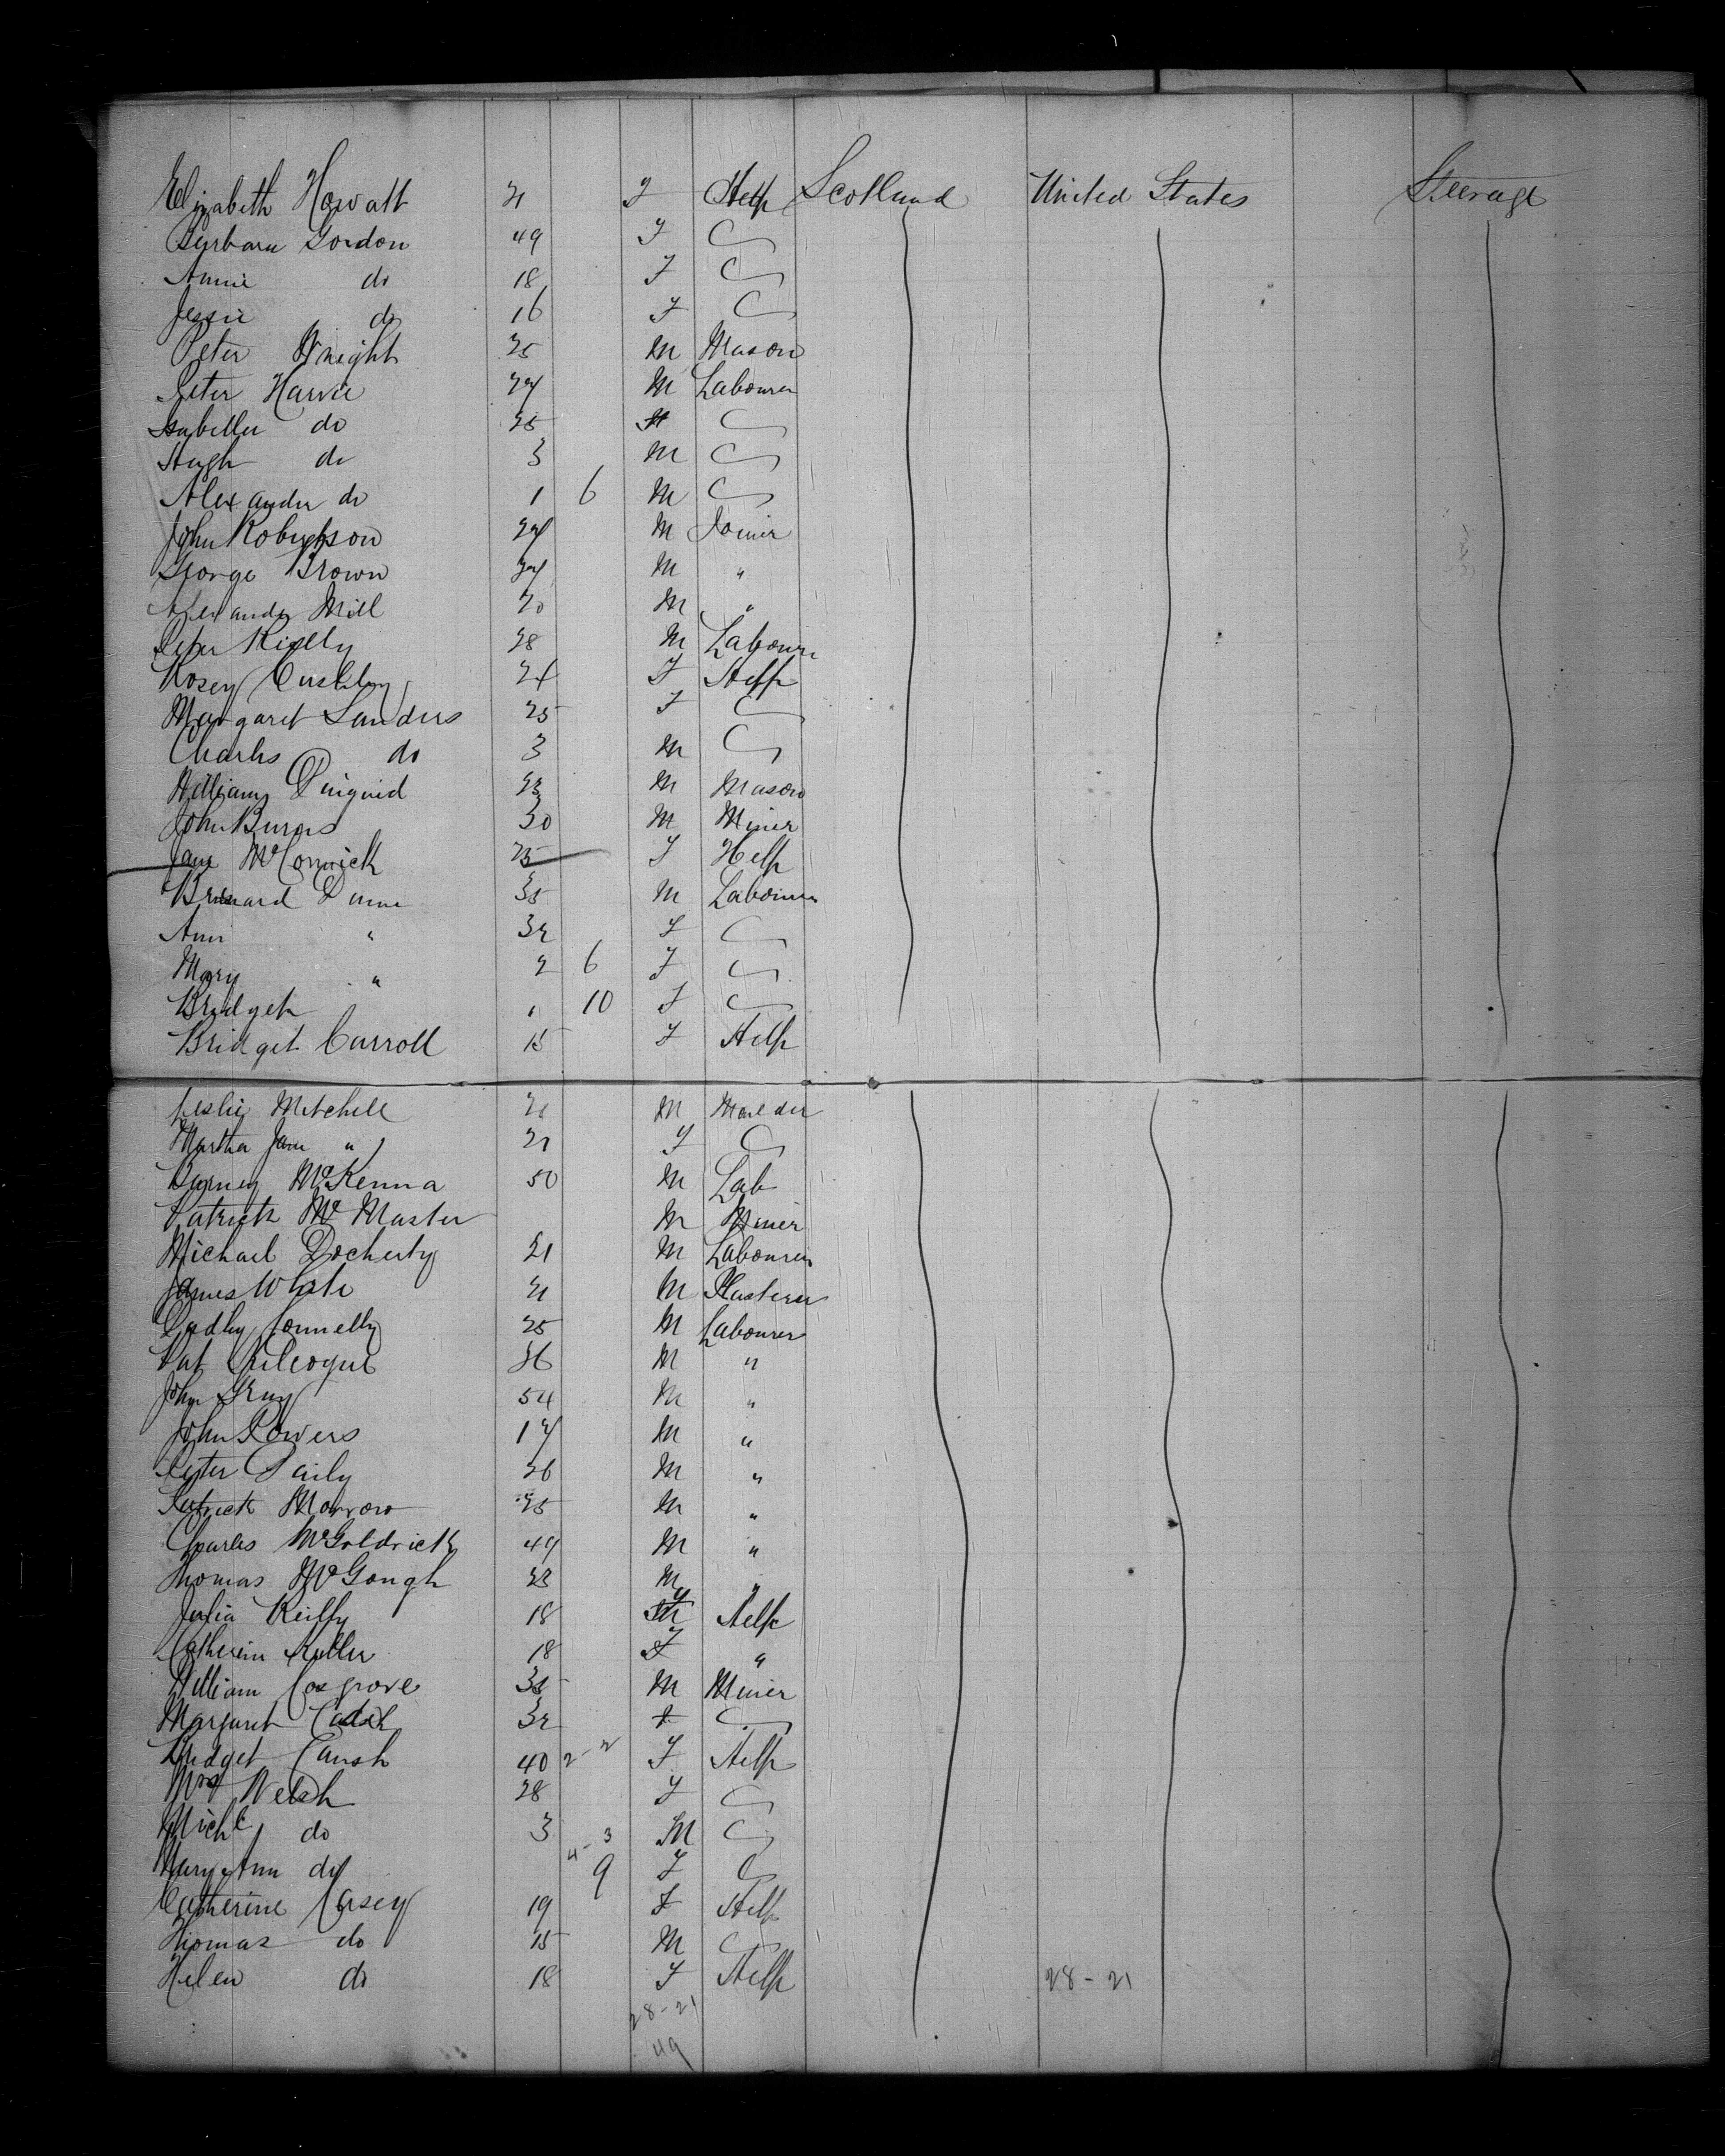 Elizabeth Howatt 21 F Help Scotland United States Steerage
Barbara Gordon 49 F
Annie do 18 F
Jessie do 16 F
Peter Knight 25 M Mason
Peter Harvie 27 M Labourer
Isabella do 25
Hugh do 3 M
Alexander do 1 6 M
John Robertson 27 M Joiner
George Brown 27 M "
Alexander Mill 20 M "
Peter Rielly 28 M Labourer
Rosey 24 F Help
Margaret Sanders 25 F
Charles do 3 M
William Duiguid 23 M Mason
John Burns 30 M Miner
Jane McCormick 25 F Help
Bernard Dunn 35 M Labourer
Ann " 32 F
Mary " 2 6 F
Bridget 1 10 F
Bridget Carroll 15 F Help
Leslie Mitchell 21 M Moulder
Martha Jane " 21 F
Barney McKenna 50 M Lab
Patrick McMaster M Miner
Michael Docherty 21 M Labourer
James White 21 M Plasterer
Connelly 25 M Labourer
Pat 36 M "
John Gray 54 M "
John Powers 17 M "
Peter Daily 26 M "
Patrick Morrow 25 M "
Charles McGoldrick 47 M "
Thomas McGough 23 M "
Julia Reilly 18 F Help
Catherine 18 F "
William Cosgrove 35 M Miner
Margaret 32 F
Bridget 40 2-2 F Help
Mrs Welsh 28 F
Michl do 3 M
4-3
Mary Ann do 9 F
Catherine Casey 19 F Help
Thomas do 15 M
Helen do 18 F Help 28-21
28-21
49